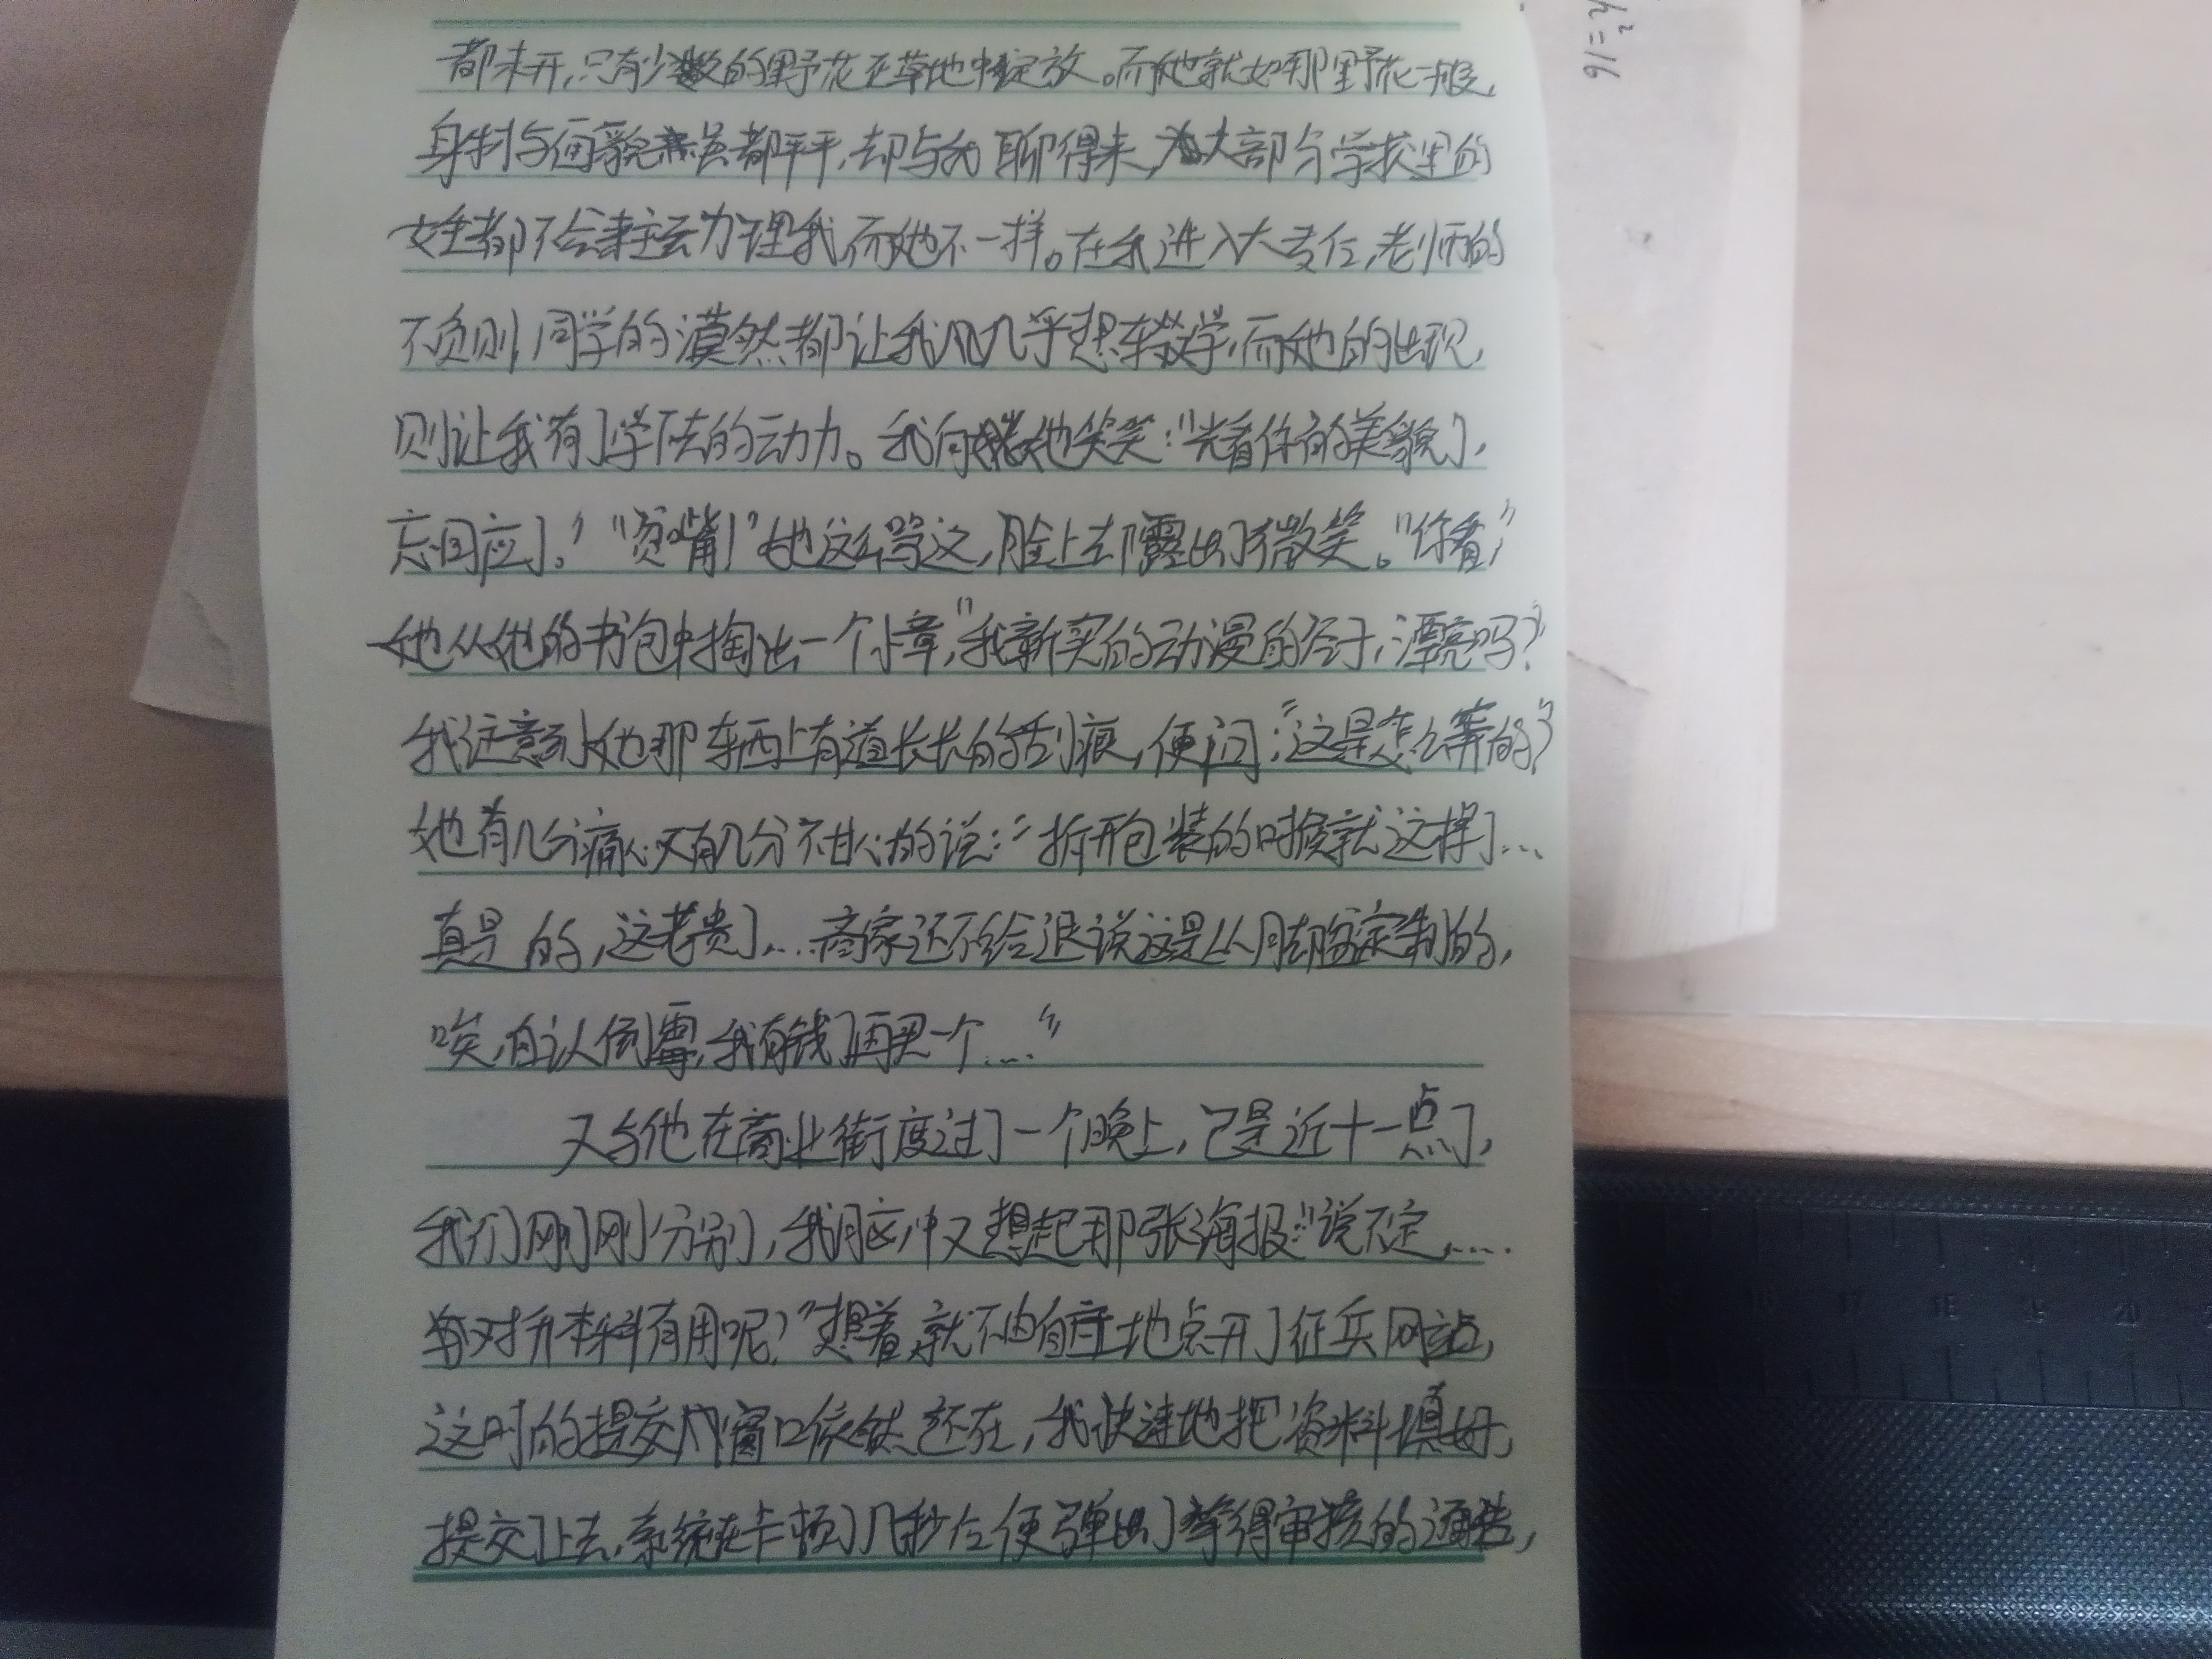 都未开,只有少数的野花在草地中绽放。而她就如那野花一般,
身材与面貌都平平,却与我聊得来,大部分学校里的
女生都不会主动理我,而她不一样。在我进入大专后,老师的
不负则,同学的漠然都让我几乎想辍学,而她的出现,
则让我有了学下去的动力。我向她笑笑:"光看你的美貌了,
忘回应了。""贫嘴!"她这么骂这,脸上却露出了微笑。"你看,"
她从她的书包中掏出一个小章,"我新买的动漫的谷子,漂亮吗?"
我注意到她那东西上有道长长的刮痕,便问:"这是怎么弄的?"
她有几分痛心又有几分不甘心的说:"拆开包装的时候就这样了...
真是的,这老贵了...商家还不给退说这是从定制的,
唉,自认倒霉,我有钱了再买一个....."
又与他在商业街度过了一个晚上,已是近十一点了,
我们刚刚分别,我脑中又想起那张海报:"说不定.....
会对升本科有用呢?"想着,就不由自主地点开了征兵网站,
这时的提交窗口依然还在,我快速地把资料填好,
提交了上去,系统在卡顿了几秒后便弹出了等得审核的通告,
16